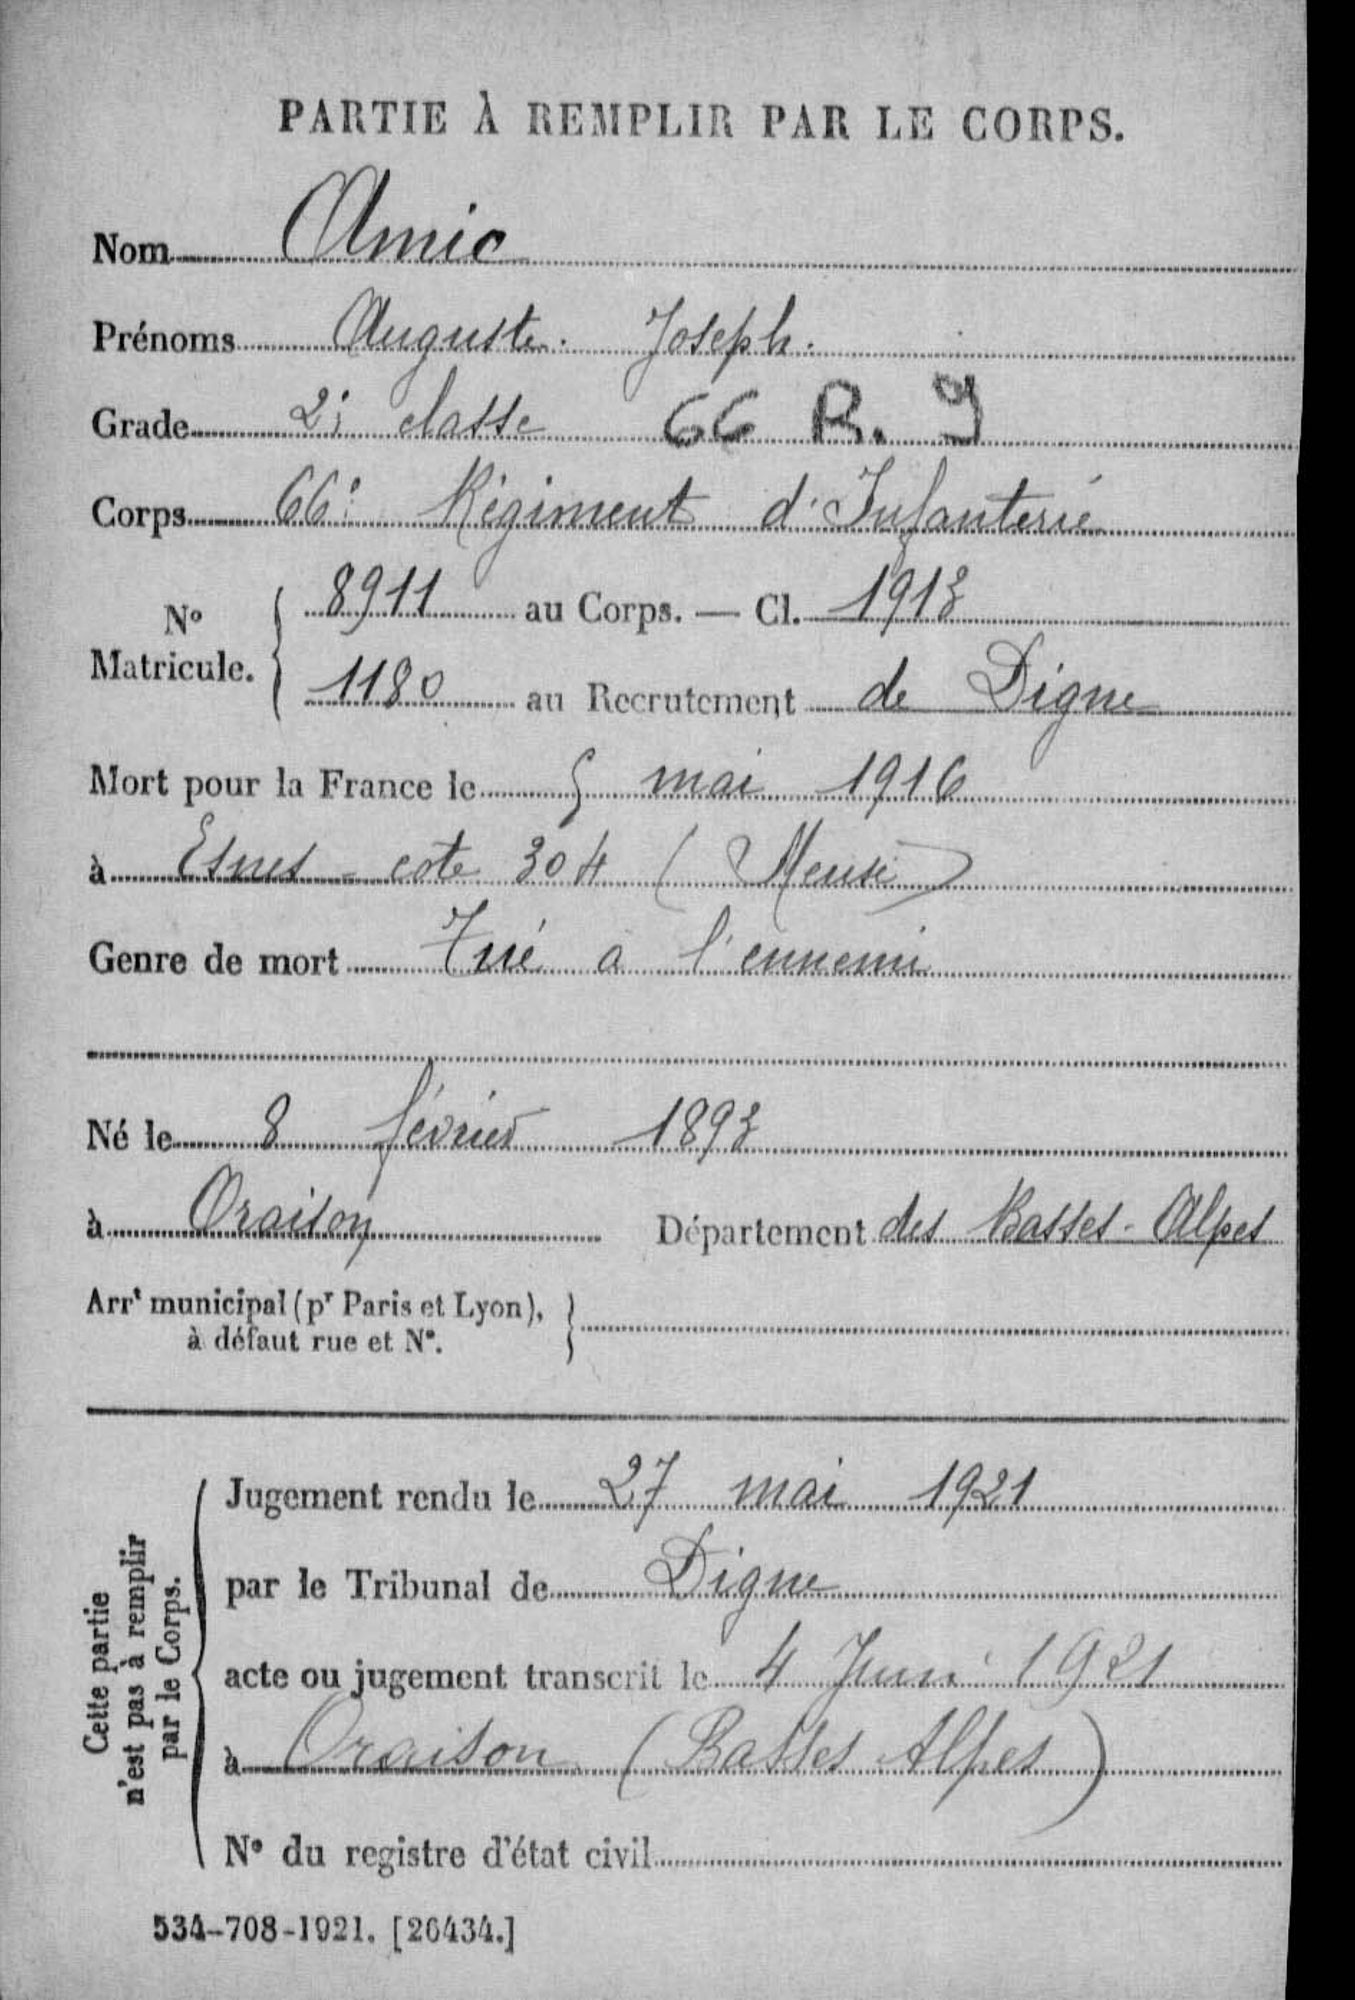 PARTIE À REMPLIR PAR LE CORPS.
Nom Amic
Prénoms Auguste. Joseph.
Grade 2e classe 66 R. I
Corps 66e Régiment d'Infanterie
No Matricule. { 8911 au Corps. — Cl. 1913
1180 au Recrutement de Digne
Mort pour la France le 5 mai 1916
à Esnes - cote 304 (Meuse)
Genre de mort Tué a l'ennemi
Né le 8 février 1893
à Oraison Département des Basses-Alpes
Arrt municipal (pr Paris et Lyon), }
à défaut rue et No.
Cette partie
n'est pas à remplir
par le Corps.
Jugement rendu le 27 mai 1921
par le Tribunal de Digne
acte ou jugement transcrit le 4 Juin 1921
à Oraison (Basses Alpes)
No du registre d'état civil
534-708-1921. [26434.]